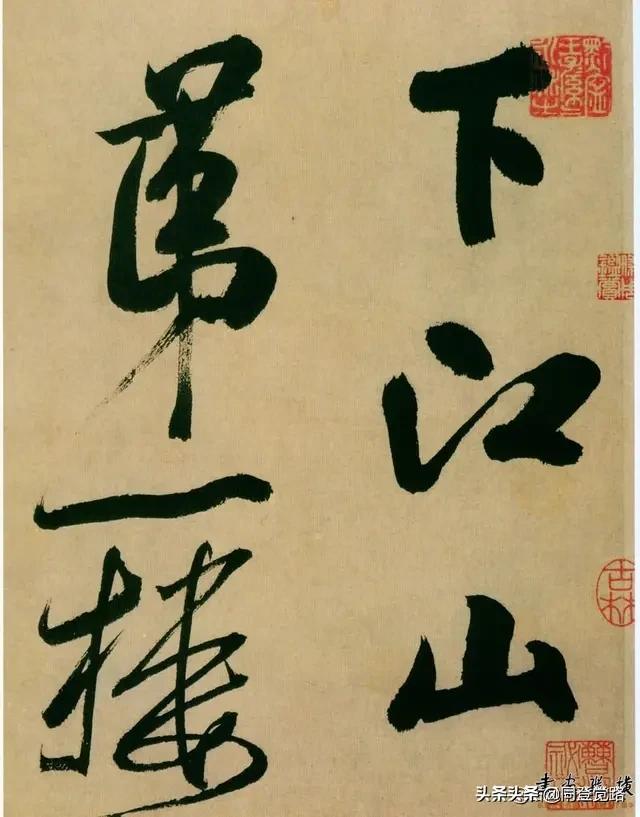 下江山
第一樓
头条头条@同登觉路